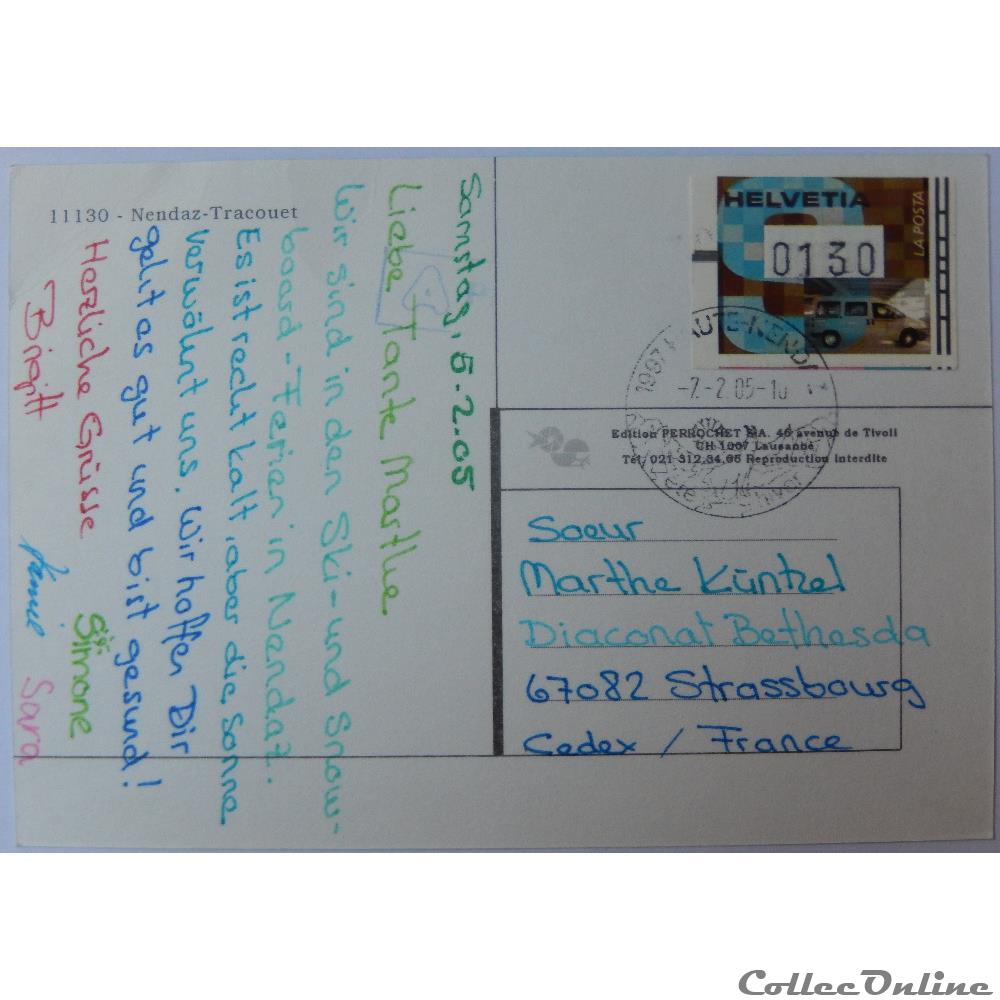 11130 - Nendaz-Tracouet
Samstag, 5.2.05
Liebe Tante Marthe
Wir sind in den Ski- und Snow-
board-Ferien in Nendaz.
Es ist recht kalt, aber die Sonne
verwöhnt uns. Wir hoffen Dir
geht es gut und bist gesund!
Herzliche Grüsse
Birgitt
Simone
Sara
HELVETIA
0130
LA POSTA
1997
HAUTE-NENDAZ
-7.-2.05-10
été
hiver
Edition PERROCHET SA. 46 avenue de Tivoli
CH 1007 Lausanne
Tél. 021 312.34.66 Reproduction interdite
Soeur
Marthe Küntzel
Diaconat Bethesda
67082 Strassbourg
Cedex / France
CollecOnline